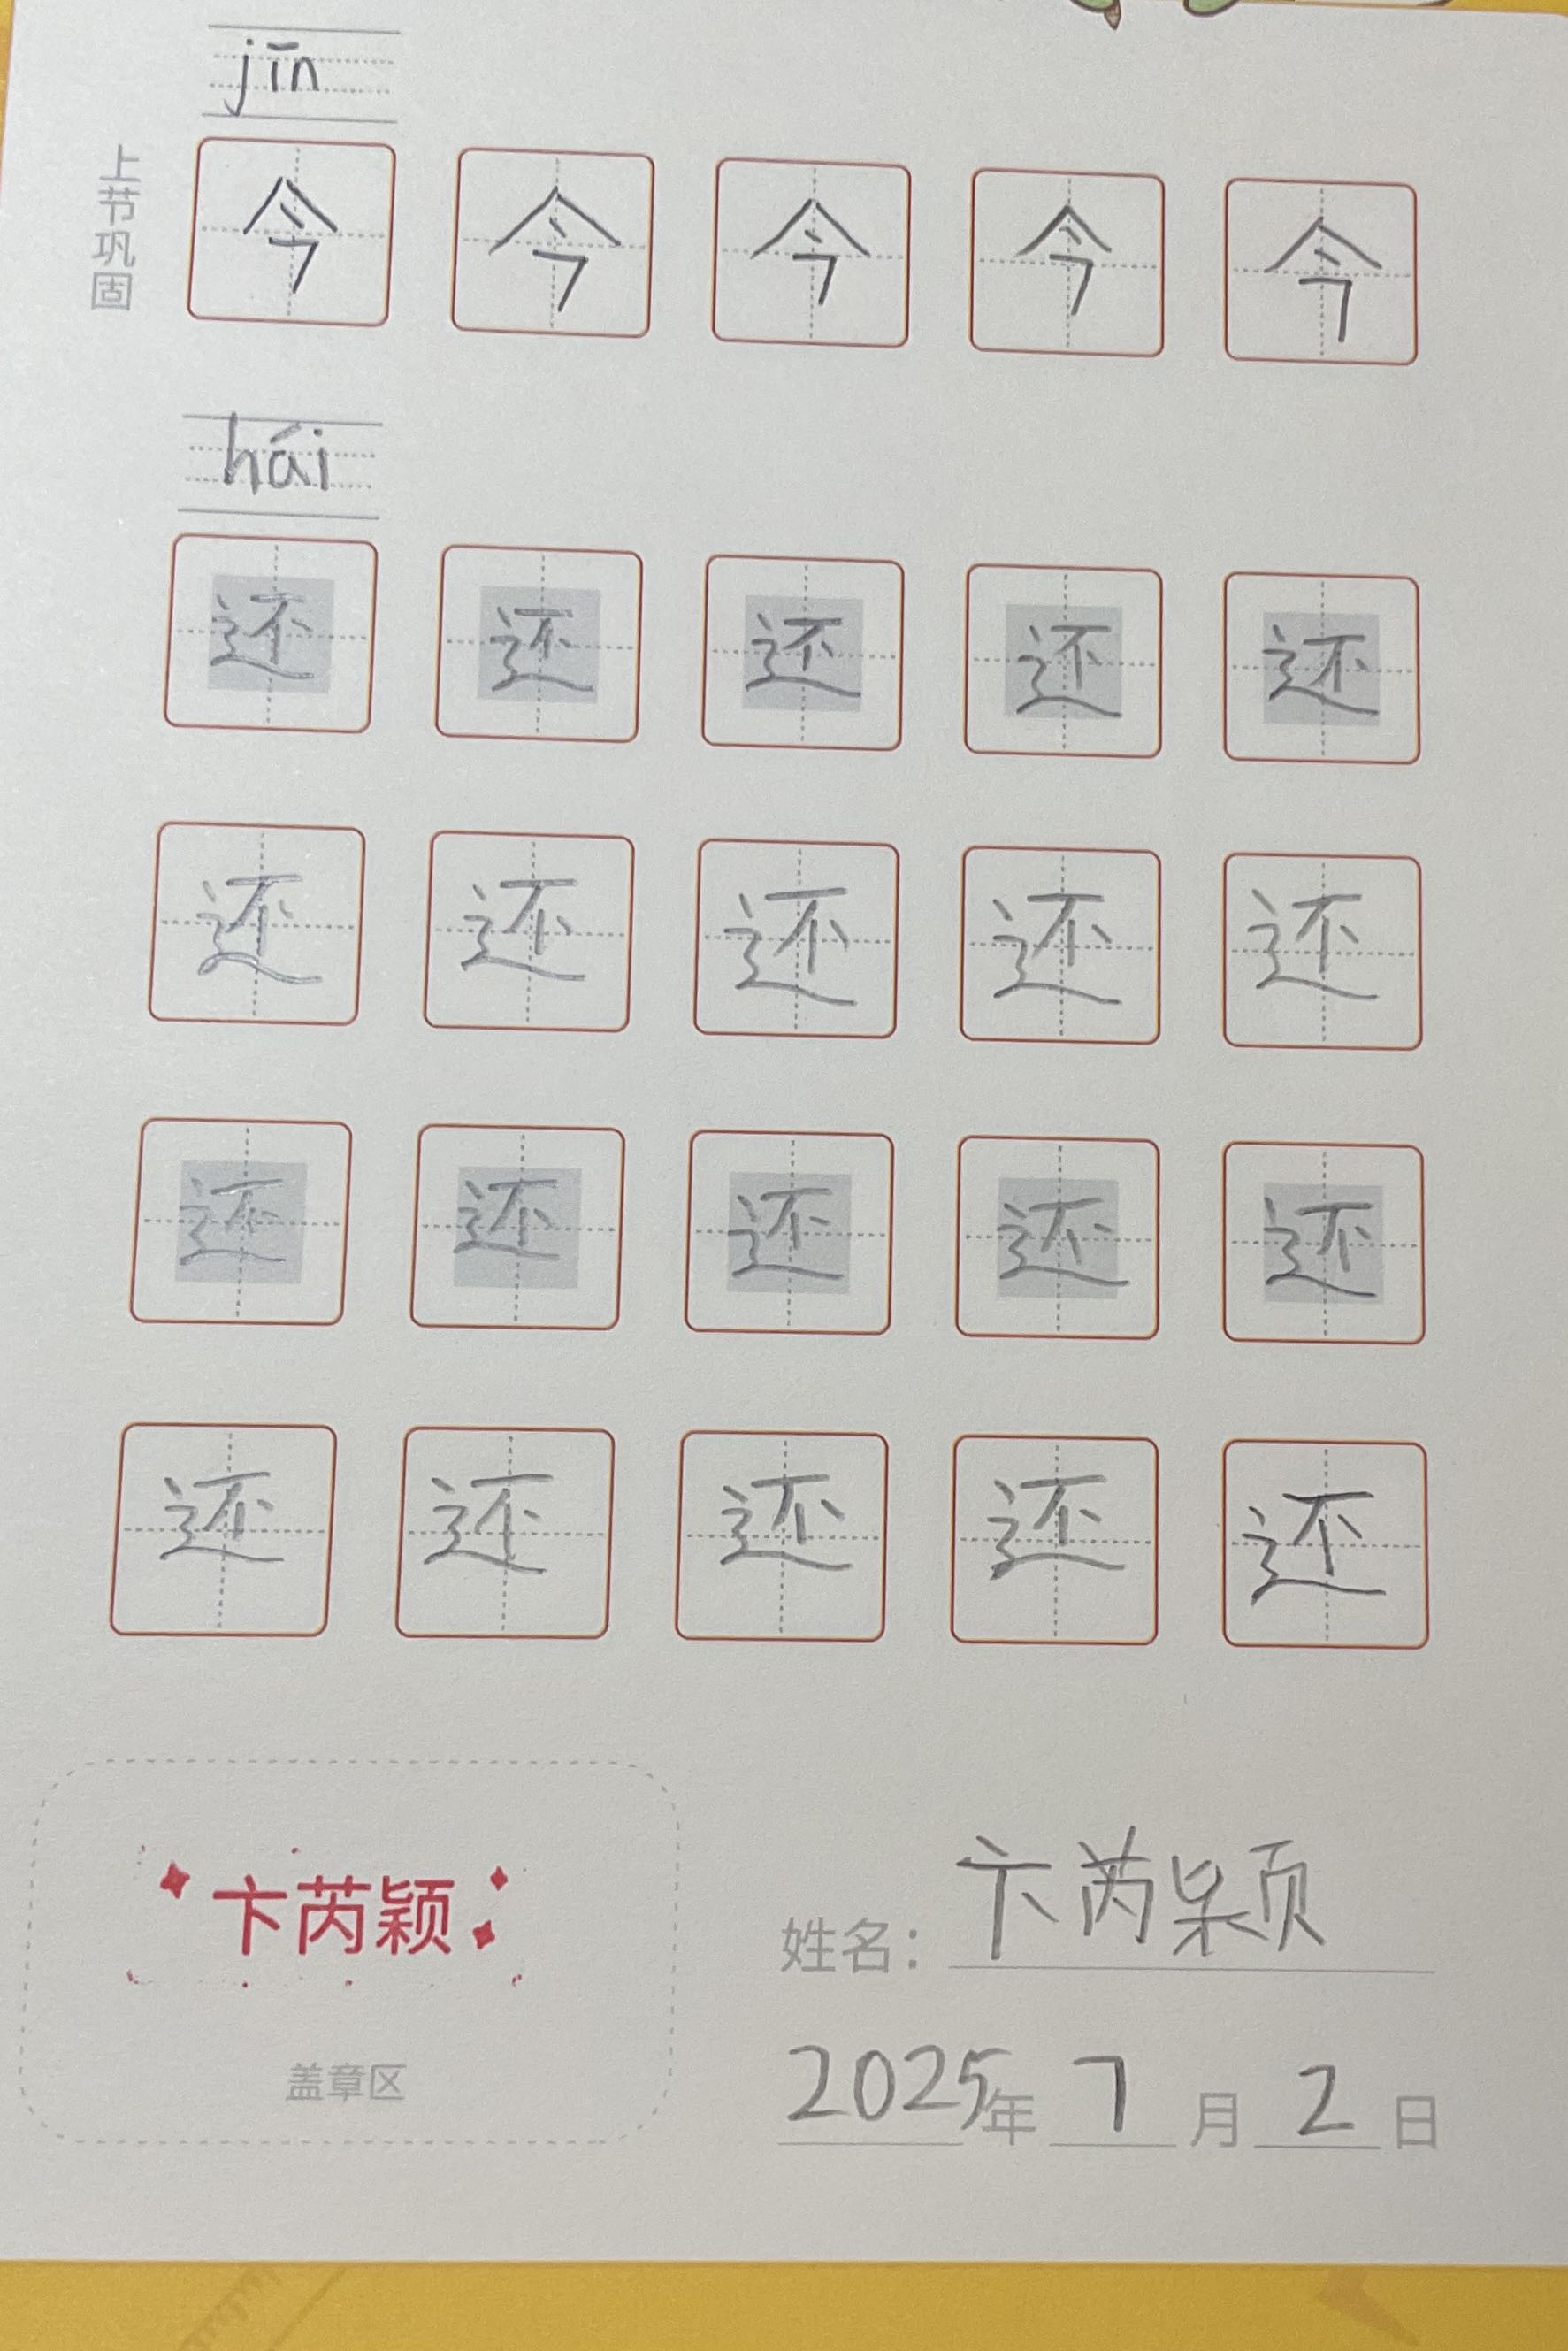 jīn
上节巩固
今 今 今 今 今
hái
还 还 还 还 还
还 还 还 还 还
还 还 还 还 还
还 还 还 还 还
卞芮颖
盖章区
姓名：卞芮颖
2025年7月2日